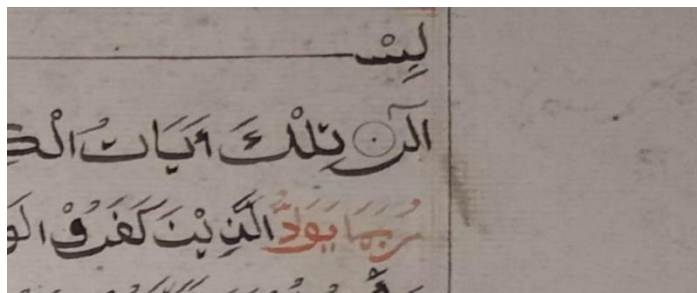 لِبِسْ
الٓر تِلْكَ أيَاتُ الْكِ
رُبَمَا يَوَدُّ الَّذِيْنَ كَفَرُوْا لَو